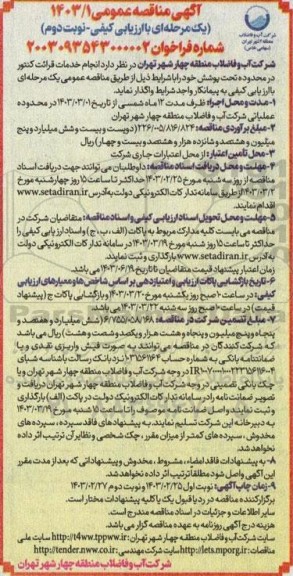 آگهی مناقصه عمومی ۱۴۰۳/۱
(یک مرحله‌ای با ارزیابی کیفی - نوبت دوم)
شماره فراخوان ۲۰۰۳۰۹۳۵۴۳۰۰۰۰۰۲
شرکت آب و فاضلاب
منطقه ۴ شهر تهران
(سهامی خاص)
شرکت آب و فاضلاب منطقه چهار شهر تهران در نظر دارد انجام خدمات قرائت کنتور
در محدوده تحت پوشش خود را با شرایط ذیل از طریق مناقصه عمومی یک مرحله‌ای
با ارزیابی کیفی به پیمانکار واجد شرایط واگذار نماید.
۱- مدت و محل اجرا: ظرف مدت ۱۲ ماه شمسی از تاریخ ۱۴۰۳/۰۳/۰۱ در محدوده
عملیاتی شرکت آب و فاضلاب منطقه چهار شهر تهران
۲- مبلغ برآوردی مناقصه: ۲۲۶/۰۵۵/۸۱۶/۸۲۴ (دویست و بیست و شش میلیارد و پنج
میلیون و هشتصد و شانزده هزار و هشتصد و بیست و چهار) ریال
۳- محل تأمین اعتبار: از محل اعتبارات جاری شرکت
۴- مهلت و محل دریافت اسناد مناقصه: داوطلبان می‌توانند جهت دریافت اسناد
مناقصه از روز سه شنبه مورخ ۱۴۰۳/۰۲/۲۵ حداکثر تا ساعت ۱۵ روز چهارشنبه مورخ
۱۴۰۳/۰۳/۲ از طریق سامانه تدارکات الکترونیکی دولت به آدرس www.setadiran.ir
اقدام نمایند.
۵- مهلت و محل تحویل اسناد ارزیابی کیفی و اسناد مناقصه: متقاضیان شرکت در
مناقصه می‌بایست کلیه مدارک مربوط به پاکات (الف، ب، ج) و اسناد ارزیابی کیفی را
حداکثر تا ساعت ۱۵ روز شنبه مورخ ۱۴۰۳/۰۳/۱۹ در سامانه تدارکات الکترونیکی دولت
به آدرس www.setadiran.ir بارگذاری و ثبت نمایند.
زمان اعتبار پیشنهاد قیمت متقاضیان تا تاریخ ۱۴۰۳/۰۶/۱۹ می‌باشد.
۶- تاریخ بازگشایی پاکات ارزیابی و امتیازدهی بر اساس شاخص‌ها و معیارهای ارزیابی
کیفی: در ساعت ۱۰ صبح روز یکشنبه مورخ ۱۴۰۳/۰۳/۲۰ و بازگشایی پاکات ج (پیشنهاد
قیمت) در ساعت ۱۰ صبح روز سه شنبه ۱۴۰۳/۰۳/۲۲ می‌باشد.
۷- مبلغ تضمین شرکت در مناقصه:
که شرکت کنندگان در مناقصه می‌توانند به صورت فیش واریزی نقدی و یا
چک بانکی تضمینی در وجه شرکت آب و فاضلاب منطقه چهار شهر تهران دریافت و
تصویر ضمانت نامه را در سامانه تدارکات الکترونیک دولت در پاکت (الف) بارگذاری
و ثبت نمایند و اصل ضمانت نامه موصوف را تا ساعت ۱۵ شنبه مورخ ۱۴۰۳/۰۳/۱۹
به دبیرخانه این شرکت تسلیم نمایند. به پیشنهادهای فاقد سپرده، سپرده‌های
مخدوش، سپرده‌های کمتر از میزان مقرر، چک شخصی و نظایر آن ترتیب اثر داده
نخواهد شد.
۸- به پیشنهادات فاقد امضاء، مشروط، مخدوش و پیشنهاداتی که بعد از مدت مقرر
این آگهی واصل شود مطلقاً ترتیب اثر داده نخواهد شد.
۹- زمان چاپ آگهی: نوبت اول ۱۴۰۳/۰۲/۲۵ و نوبت دوم ۱۴۰۳/۰۲/۲۷
برگزارکننده مناقصه در رد یا قبول یک یا کلیه پیشنهادات مختار است.
سایر اطلاعات و جزئیات در اسناد مناقصه مندرج است.
هزینه درج آگهی روزنامه به عهده مناقصه گزار می‌باشد.
سایت شرکت آب و فاضلاب منطقه چهار شهر تهران http://t4ww.tpww.ir سایت ملی
مناقصات: http://iets.mporg.ir سایت شرکت مهندسی: http://tender.nww.co.ir
شرکت آب و فاضلاب منطقه چهار شهر تهران